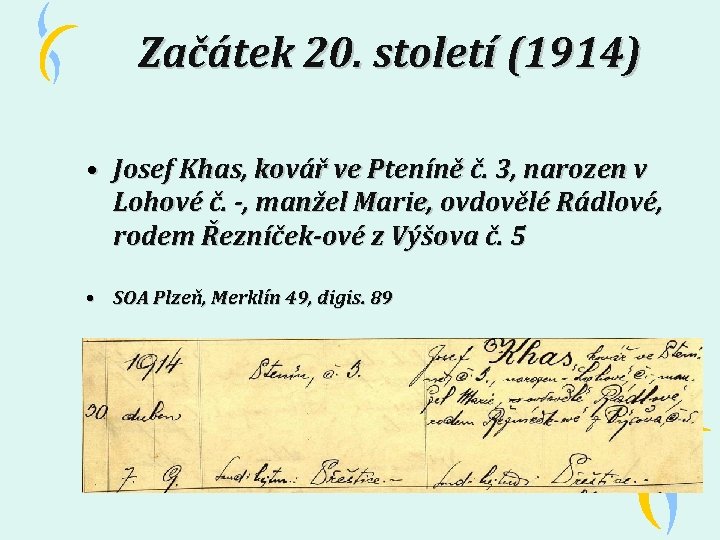 Začátek 20. století (1914)
• Josef Khas, kovář ve Pteníně č. 3, narozen v
Lohové č. -, manžel Marie, ovdovělé Rádlové,
rodem Řezníček-ové z Výšova č. 5
• SOA Plzeň, Merklín 49, digis. 89
1914
Ptenín, č. 3.
Josef Khas, kovář ve Ptení-
ně č. 3., narozen Lohové, č., man-
žel Marie, ovdovělé Rádlové,
rodem Řezníček-ové z Výšova, č. 5.
30. duben
7. 9.
hejtm: Přeštice.
Přeštice.